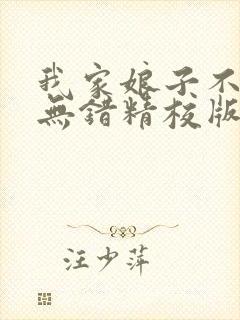 我家娘子不
無錯精校版
汪少萍